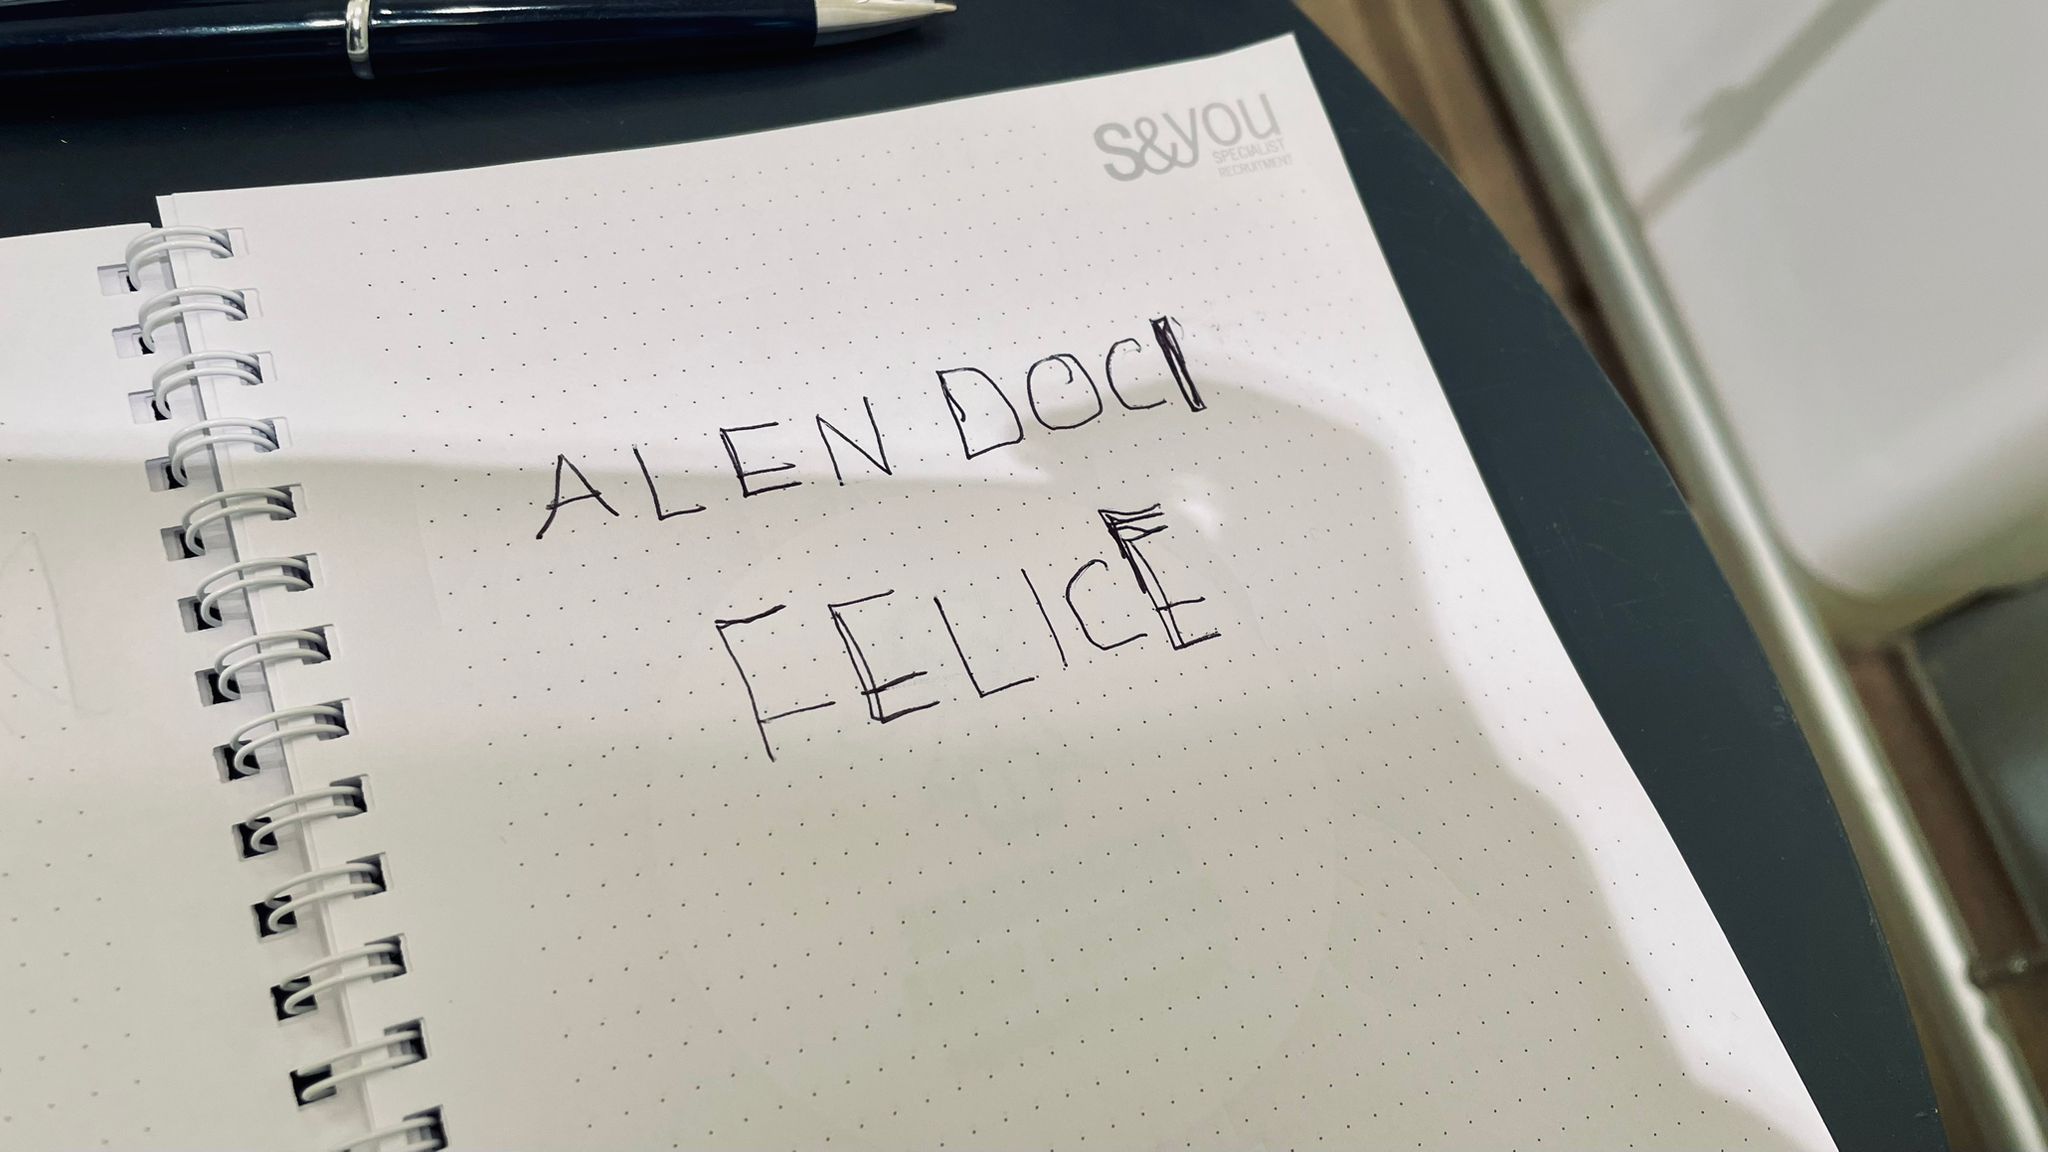 S&you
SPECIALIST
RECRUITMENT
ALEN DOCI
FELICE